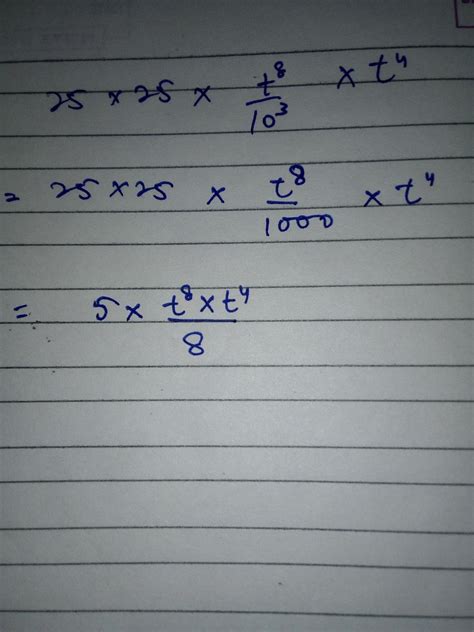 25 × 25 × t⁸/10³ × t⁴
= 25 × 25 × t⁸/1000 × t⁴
= 5 × t⁸ × t⁴/8